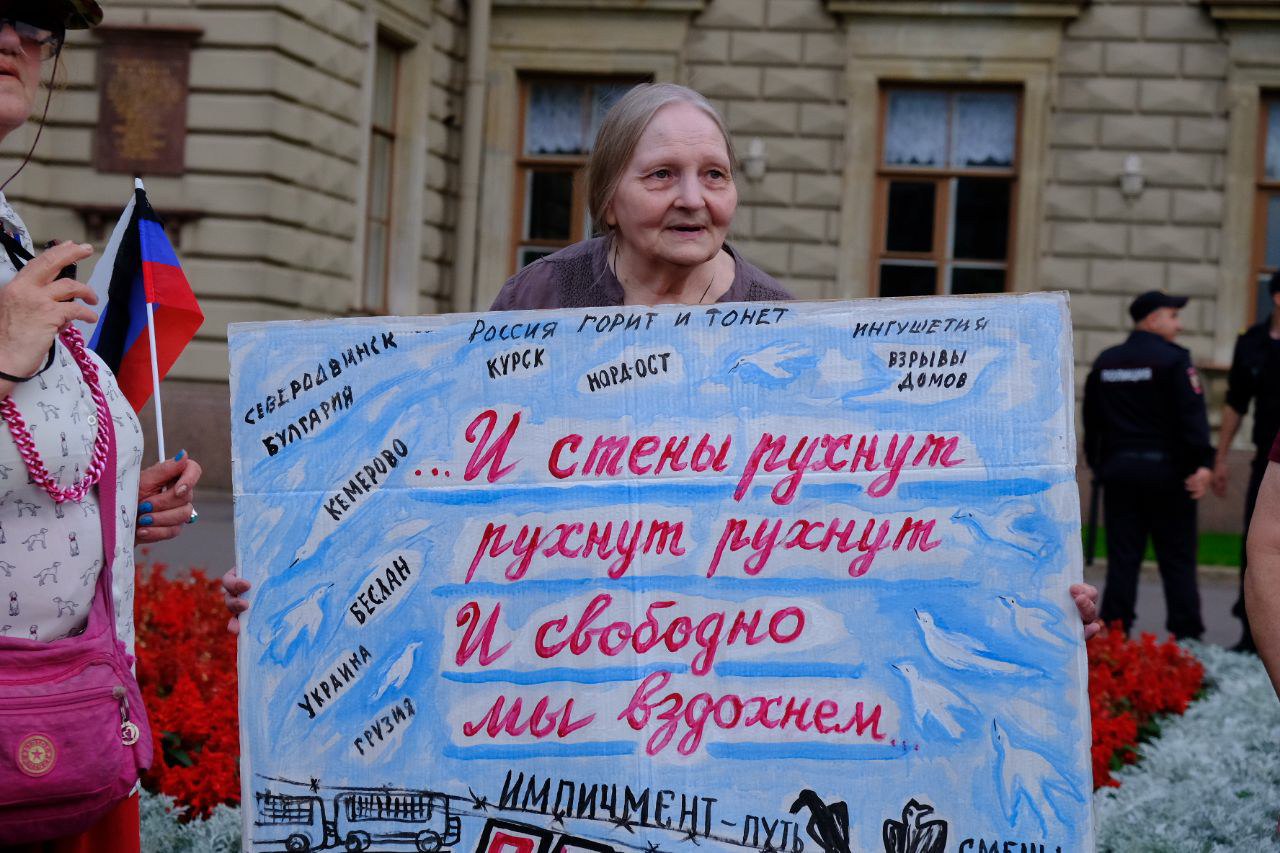 РОССИЯ ГОРИТ И ТОНЕТ
СЕВЕРОДВИНСК
КУРСК
НОРД-ОСТ
ИНГУШЕТИЯ
ВЗРЫВЫ
ДОМОВ
БУЛГАРИЯ
КЕМЕРОВО
БЕСЛАН
УКРАИНА
ГРУЗИЯ
...И стены рухнут
рухнут рухнут
И свободно
мы вздохнем...
ИМПИЧМЕНТ-ПУТЬ
СМЕНЫ
ПОЛИЦИЯ